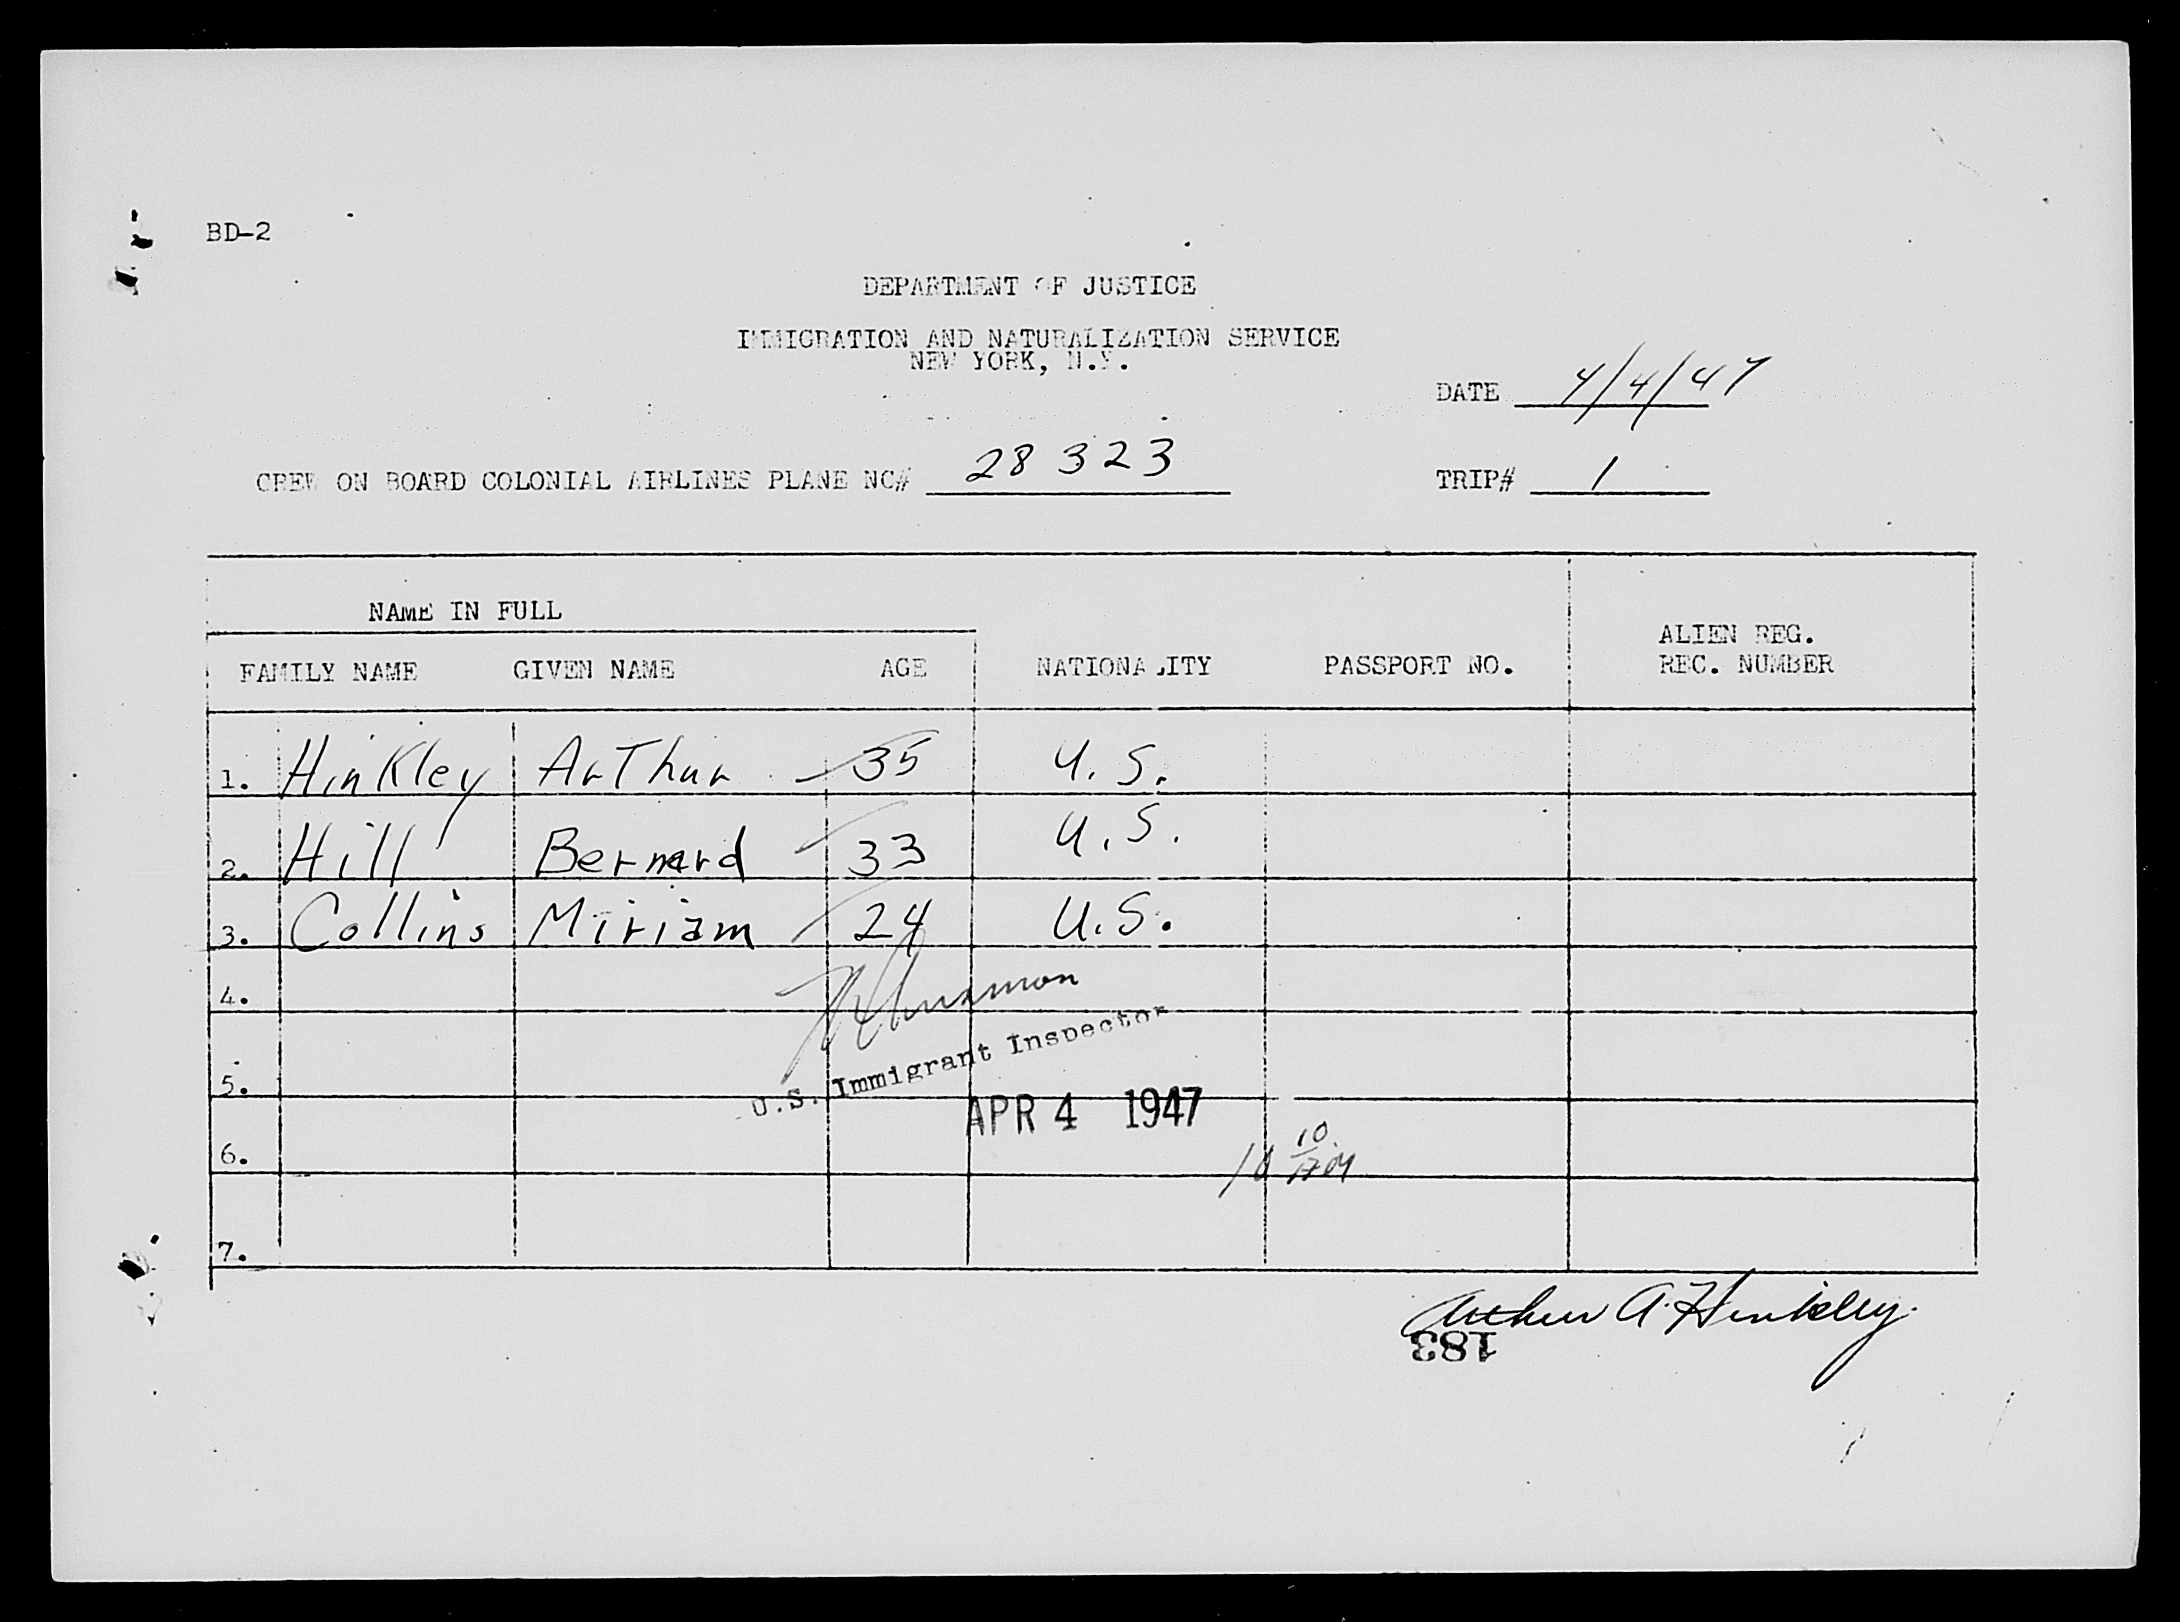 BD-2
DEPARTMENT OF JUSTICE
IMMIGRATION AND NATURALIZATION SERVICE
NEW YORK, N.Y.
DATE 4/4/47
CREW ON BOARD COLONIAL AIRLINES PLANE NC# 28323 TRIP# 1
NAME IN FULL
FAMILY NAME GIVEN NAME AGE NATIONALITY PASSPORT NO. ALIEN REG. REC. NUMBER
1. Hinkley Arthur 35 U.S.
2. Hill Bernard 33 U.S.
3. Collins Miriam 24 U.S.
4.
U.S. Immigrant Inspector
5.
APR 4 1947
6.
7.
Arthur A. Hinkley.
183